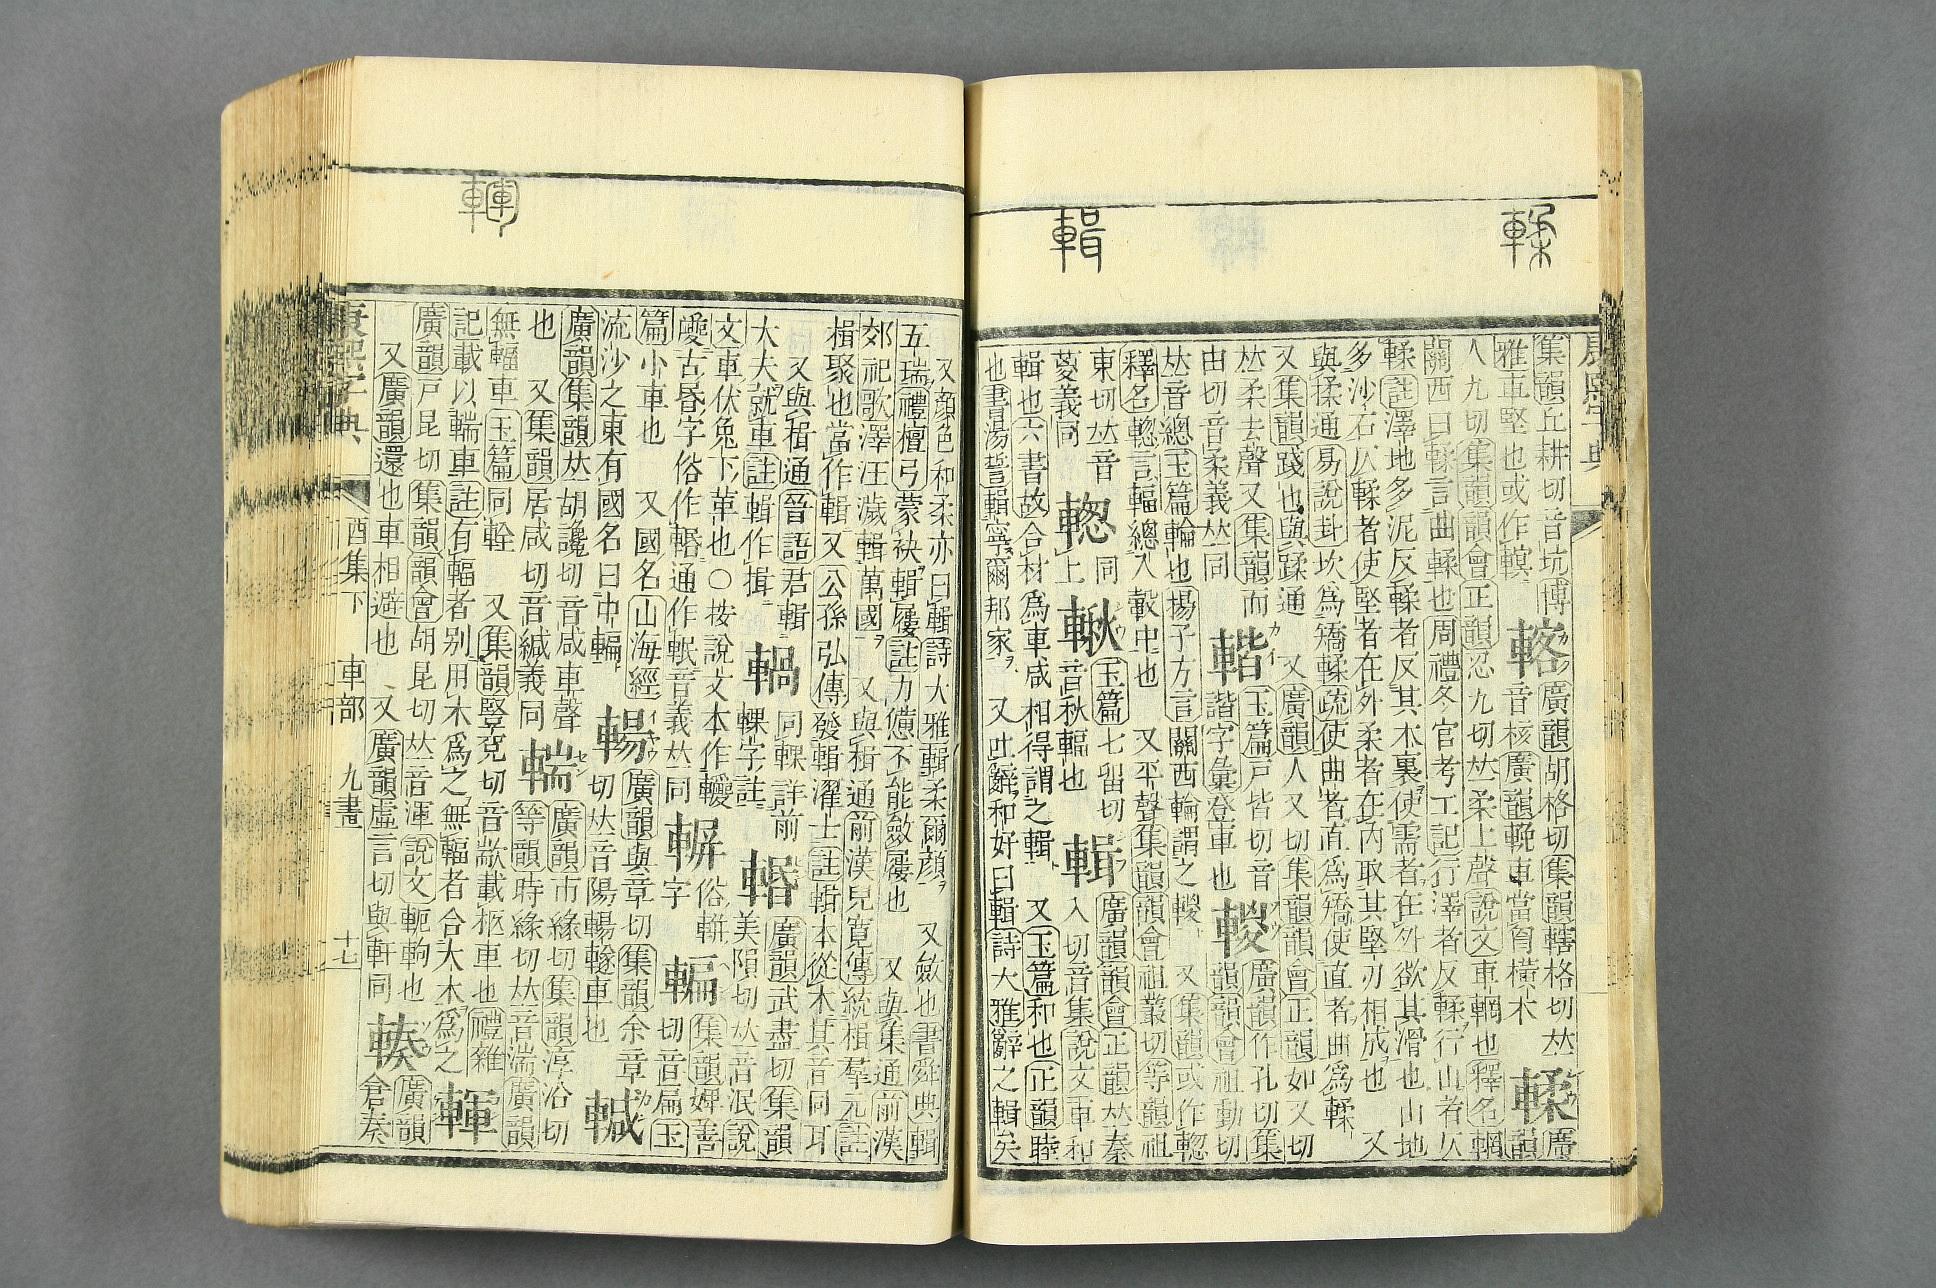 輮
輯
康熙字典
集韻丘耕切音坑博 廣韻胡格切集韻轄格切𠀤 輮 廣
雅車堅也或作䡰 音核廣韻輓車當胷橫木 韻
人九切集韻韻會正韻忍九切𠀤柔上聲說文車輞也釋名輞
關西曰輮言曲輮也周禮冬官考工記行澤者反輮行山者仄
輮註澤地多泥反輮者反其木裏使需者在外欲其滑也山地
多沙石仄輮者使堅者在外柔者在內取其堅刃相成也 又
與揉通易說卦坎爲矯輮疏使曲者直爲矯使直者曲爲輮
又集韻踐也與蹂通 又廣韻人又切集韻韻會正韻如又切
𠀤柔去聲又集韻而 玉篇戸皆切音 廣韻作孔切集
由切音柔義𠀤同 諧字彙登車也 韻韻會祖動切
𠀤音總玉篇輪也揚子方言關西輪謂之 又集韻或作
釋名 言輻總入轂中也 又平聲集韻韻會祖叢切等韻祖
東切𠀤音 同 玉篇七畱切 輯 廣韻韻會正韻𠀤秦
葼義同 上 音秋輻也 入切音集說文車和
輯也六書故合材爲車咸相得謂之輯 又玉篇和也正韻睦
也書湯誓輯寧爾邦家 又吐辭和好曰輯詩大雅辭之輯矣
又顏色和柔亦曰輯詩大雅輯柔爾顏 又斂也書舜典輯
五瑞禮檀弓蒙袂輯屨註力憊不能斂屨也 又與集通前漢
郊祀歌澤汪濊輯萬國 又與楫通前漢兒寬傳統楫羣元註
楫聚也當作輯又公孫弘傳發輯濯士註輯本從木其音同耳
又與楫通晉語君輯 同輠詳前 廣韻武盡切集韻
大夫就車註輯作揖 輠字註 美隕切𠀤音泯說
文車伏兔下革也○按說文本作 俗軿 集韻婢善
古昬字俗作 通作 音義𠀤同 字 切音扁玉
篇小車也 又國名山海經 輰 廣韻與章切集韻余章
流沙之東有國名曰中 切𠀤音陽輰䡵車也
廣韻集韻𠀤胡讒切音咸車聲 輲 廣韻市緣切集韻淳沿切
也 又集韻居咸切音緘義同 等韻時緣切𠀤音 廣韻
無輻車玉篇同輇 又集韻豎兗切音 載柩車也禮雜
記載以輲車註有輻者別用木爲之無輻者合大木爲之 輝
廣韻戸昆切集韻韻會胡昆切𠀤音渾說文軶軥也 輳 廣韻
又廣韻還也車相避也 又廣韻虛言切與軒同 倉奏
康熙字典 酉集下 車部 九畫 十七